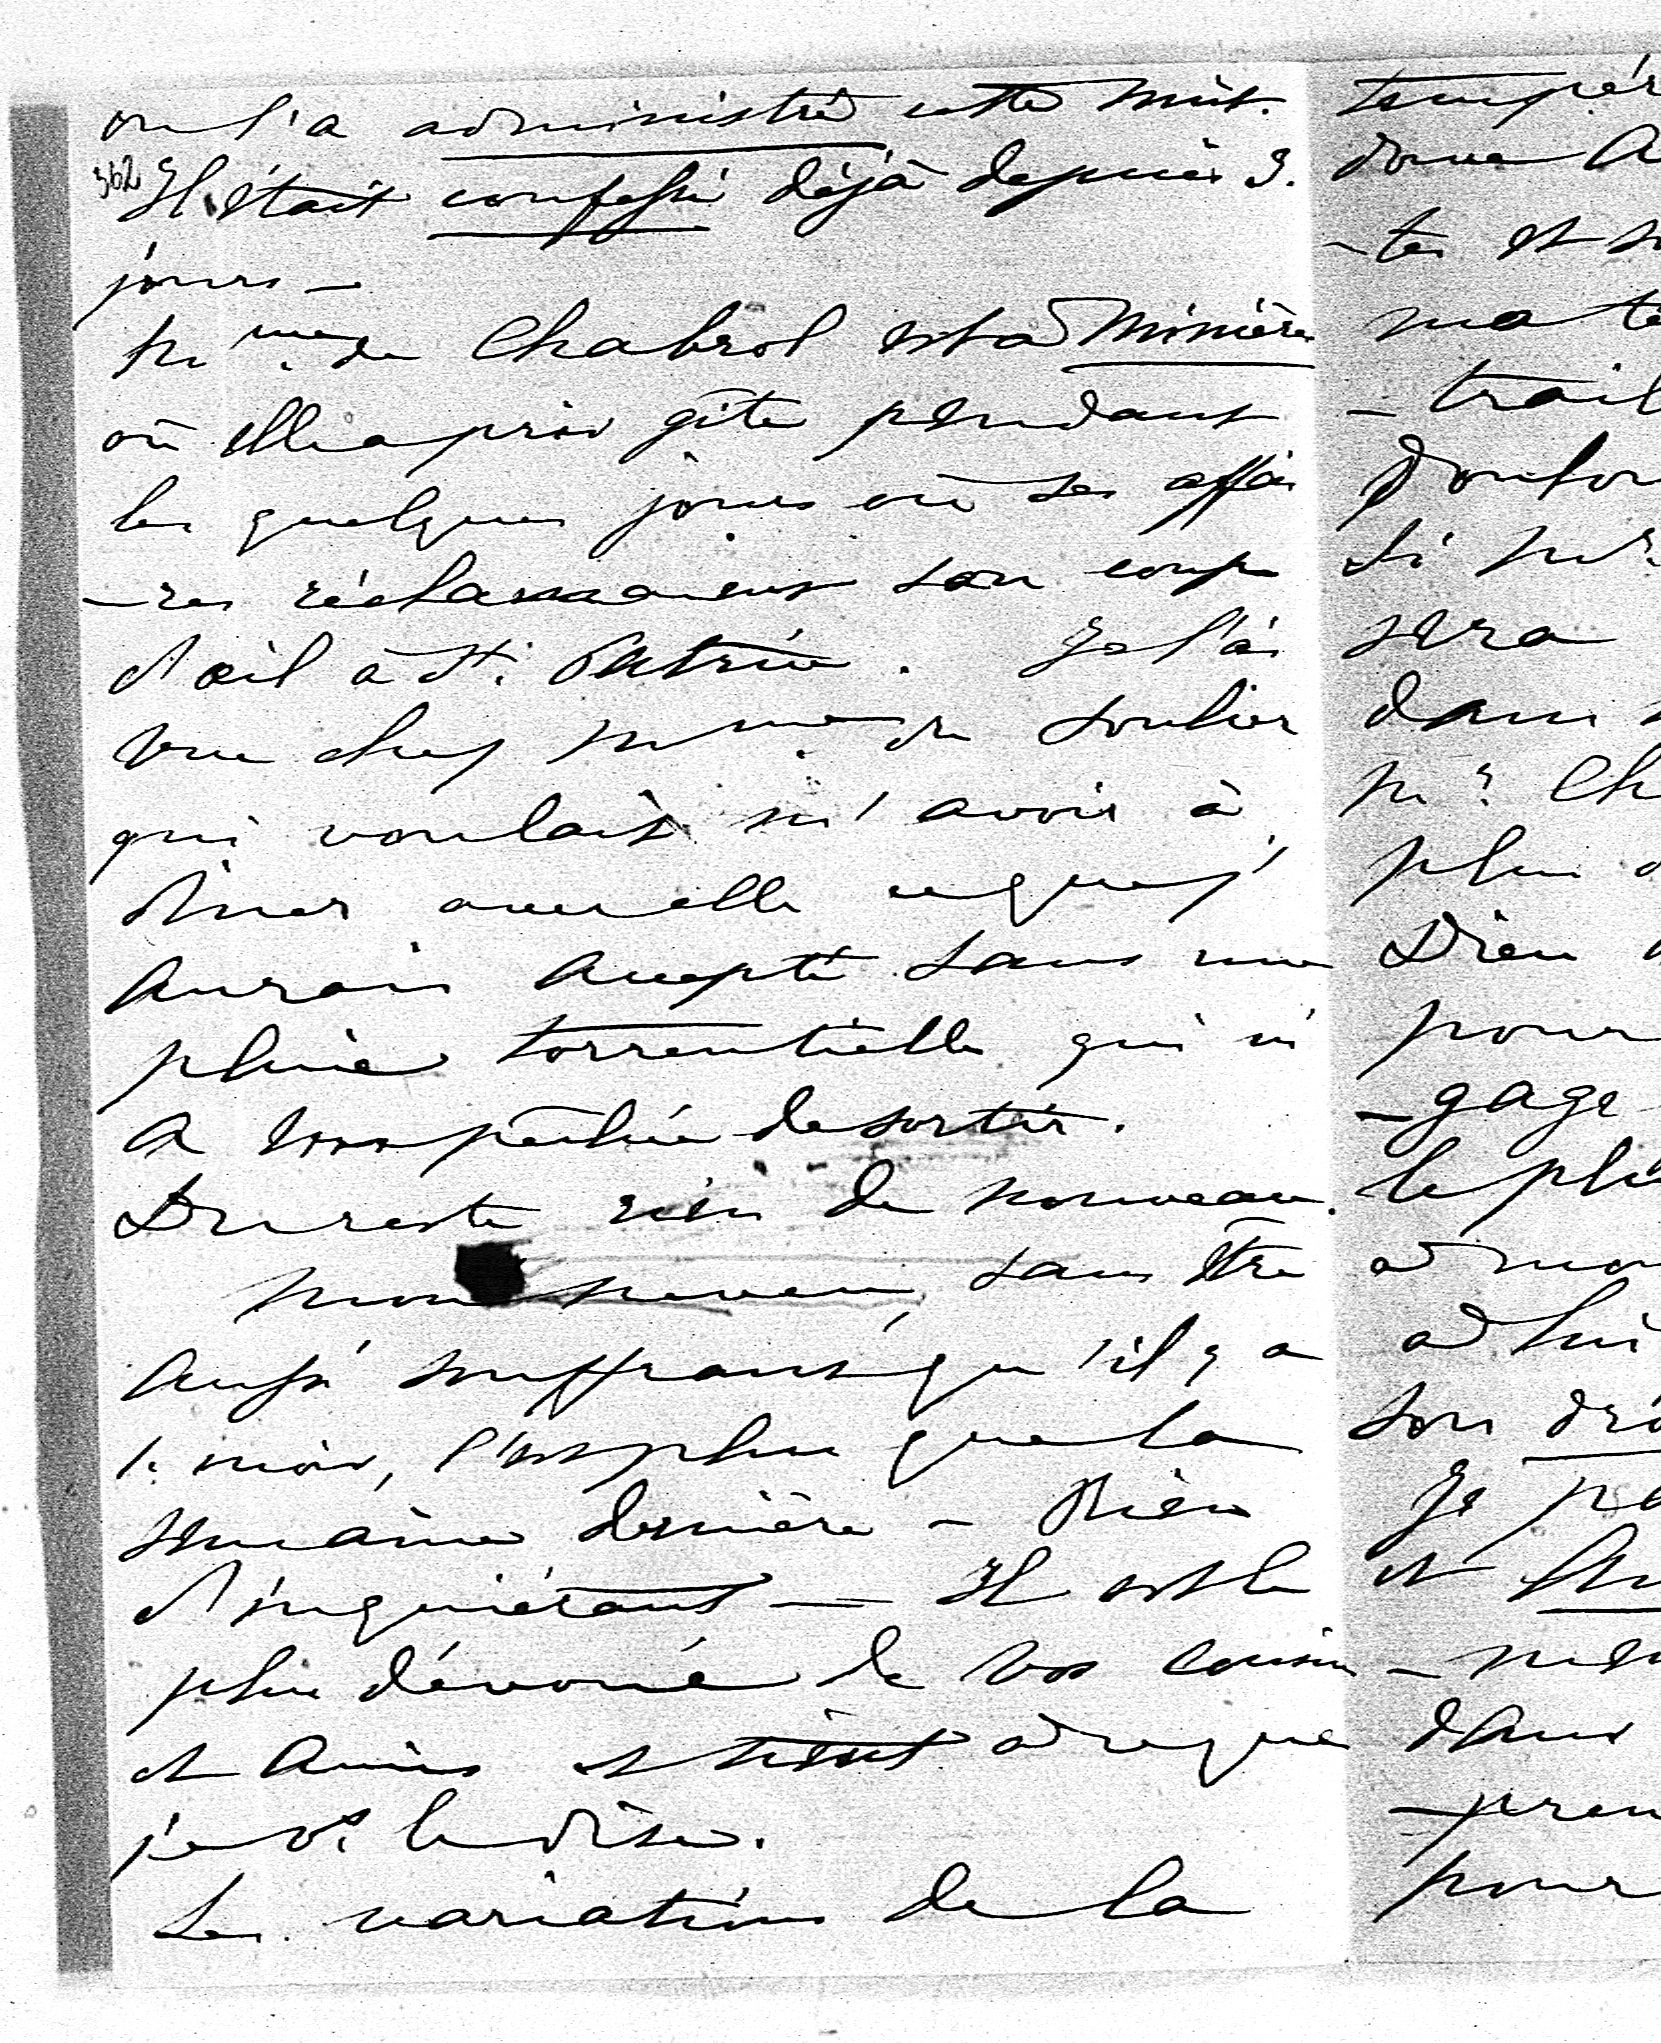 on l'a administré cette nuit.
362
Il était confessé déjà depuis 3.
jours —
Mme. de Chabrol est à Minière
où elle a pris gîte pendant
les quelques jours où ses affai
-res réclamaient son coup
d'œil à St. Patrice. Je l'ai
vue chez Mme. du Soulier
qui voulait m'avoir à
dîner avec elle ce que j'
aurais accepté sans une
pluie torrentielle qui m'
a empêchée de sortir.
Du reste rien de nouveau.
mon neveu, sans être
aussi souffrant qu'il y a
1. mois, l'est plus que la
semaine dernière — Rien
d'inquiétant — Il est le
plus dévoué de vos cousins
et amis et tient à ce que
je vs. le dise.
Les variations de la
tempér
donc a
-tes et
-trail
si Mr.
sera
dans
Mr. Ch
plus
Dieu
pour
-gage
le plu
à
à lui
son
Je
et
dans
-pren
pour